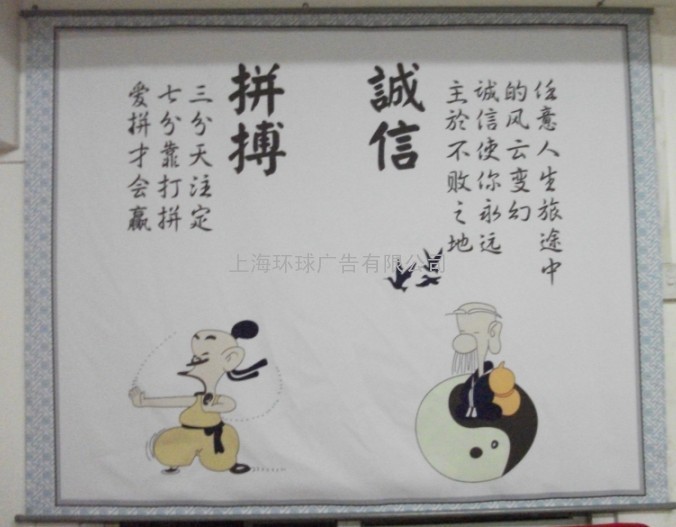 誠信
任意人生旅途中
的风云变幻
诚信使你永远
主於不败之地
拼搏
三分天注定
七分靠打拼
爱拼才会赢
上海环球广告有限公司